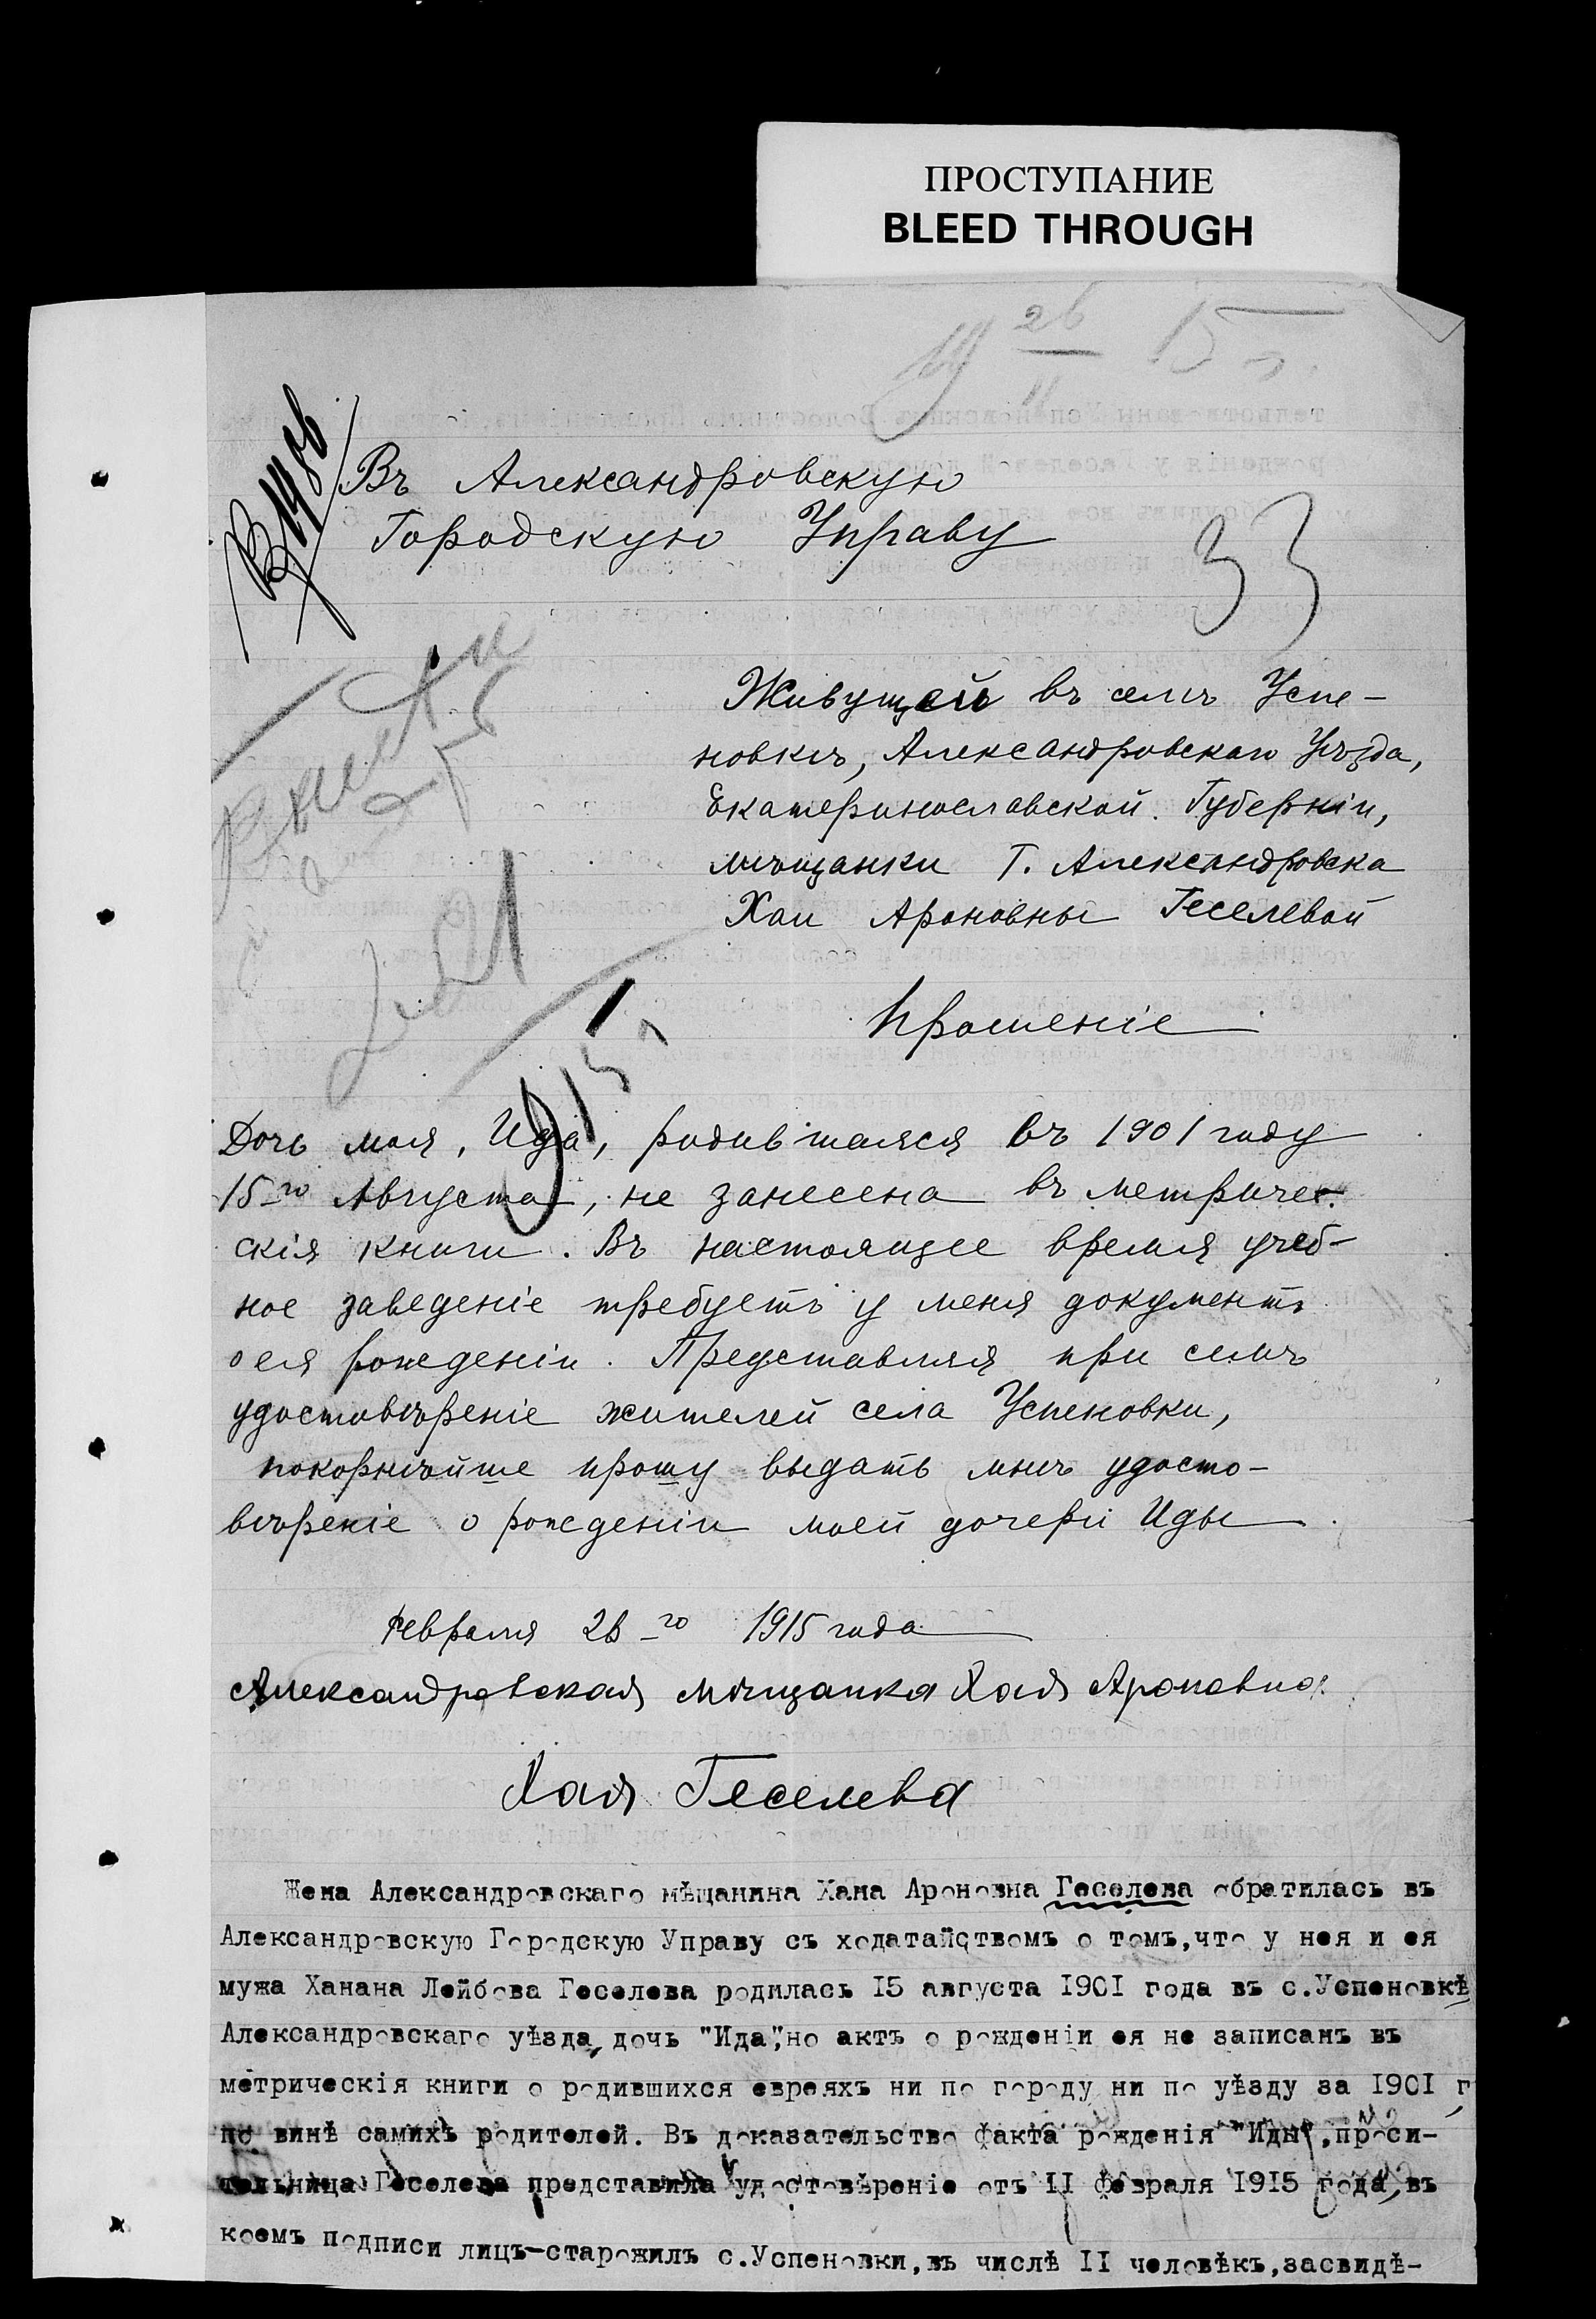 ПРОСТУПАНИЕ
BLEED THROUGH
26
15
Въ Александровскую
Городскую Управу
33
Живущей въ селѣ Успе-
новкѣ, Александровскаго Уѣзда,
Екатеринославской Губерніи,
мѣщанки г. Александровска
Хаи Ароновны Геселевой
Прошеніе
Дочь моя, Ида, родившаяся въ 1901 году
15-го Августа, не занесена въ метричес-
скія книги. Въ настоящее время учеб-
ное заведеніе требуетъ у меня документъ
о ея рожденіи. Представляя при семъ
удостовѣреніе жителей села Успеновки,
покорнѣйше прошу выдать мнѣ удосто-
вѣреніе о рожденіи моей дочери Иды.
Февраля 26-го 1915 года
Александровская мѣщанка Хая Ароновна
Хая Геселева
Жена Александровскаго мѣщанина Хана Ароновна Геселева обратилась въ
Александровскую Городскую Управу съ ходатайствомъ о томъ,что у нея и ея
мужа Ханана Лейбова Геселева родилась 15 августа 1901 года въ с.Успеновкѣ
Александровскаго уѣзда, дочь "Ида",но актъ о рожденіи ея не записанъ въ
метрическія книги о родившихся евреяхъ ни по городу ни по уѣзду за 1901 г
по винѣ самихъ родителей. Въ доказательство факта рожденія "Иды",проси-
тельница Геселева представила удостовѣреніе отъ 11 февраля 1915 года,въ
коемъ подписи лицъ-старожилъ с.Успеновки,въ числѣ 11 человѣкъ,засвидѣ-